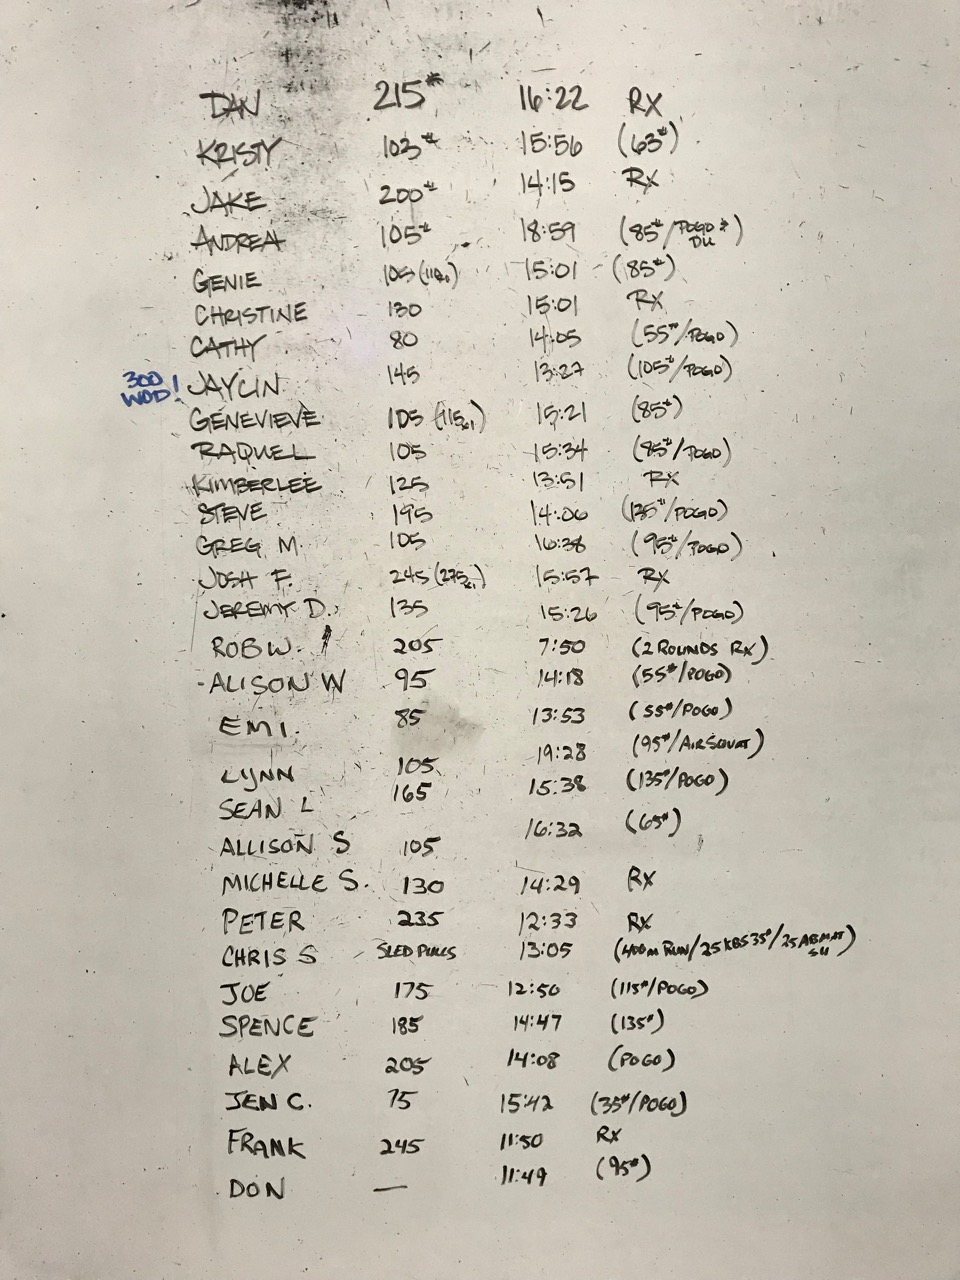 DAN 215# 16:22 RX
KRISTY 103# 15:56 (63#)
JAKE 200# 14:15 RX
ANDREA 105# 18:59 (85#/POGO & DU)
GENIE 105 15:01 (85#)
CHRISTINE 130 15:01 RX
CATHY 80 14:05 (55#/POGO)
300 WOD! JAYLIN 145 13:27 (105#/POGO)
GENEVIEVE 105 (115x1) 15:21 (85#)
RAQUEL 105 15:34 (85#/POGO)
KIMBERLEE 125 13:51 RX
STEVE 195 14:06 (135#/POGO)
GREG M. 105 16:38 (95#/POGO)
JOSH F. 245 (275x1) 15:57 RX
JEREMY D. 135 15:26 (95#/POGO)
ROB W. 205 7:50 (2 ROUNDS RX)
-ALISON W 95 14:18 (55#/POGO)
EMI. 85 13:53 (55#/POGO)
LYNN 105 19:28 (95#/AIRSQUAT)
SEAN L 165 15:38 (135#/POGO)
ALLISON S 105 16:32 (65#)
MICHELLE S. 130 14:29 RX
PETER 235 12:33 RX
CHRIS S SLED PULLS 13:05 (400m RUN/25 KBS 35#/25 ABMAT SU)
JOE 175 12:50 (115#/POGO)
SPENCE 185 14:47 (135#)
ALEX 205 14:08 (POGO)
JEN C. 75 15:42 (35#/POGO)
FRANK 245 11:50 RX
DON — 11:49 (95#)